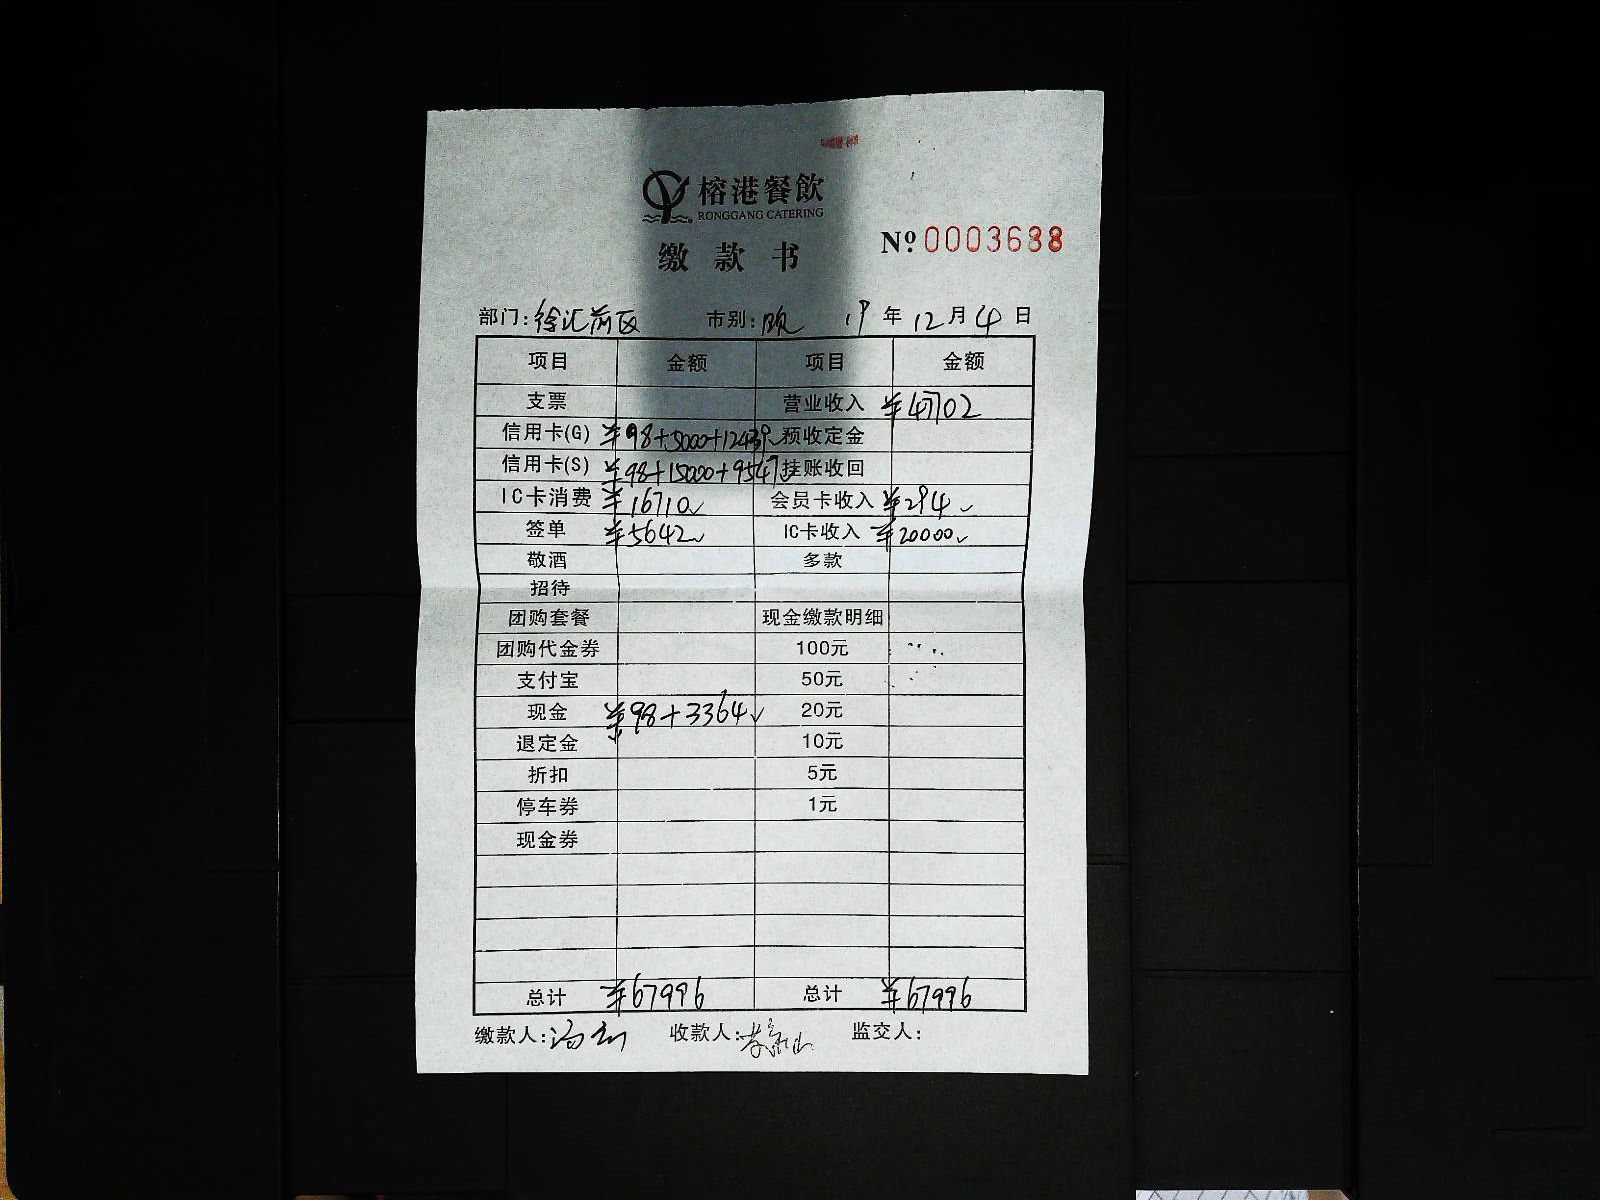 榕港餐飲
RONGGANG CATERING
缴款书
Nº 0003688
部门: 徐汇前区 市别: 19 年 12 月 4 日
项目 金额 项目 金额
支票 营业收入 ¥47702
信用卡(G) ¥98+5000+12439 预收定金
信用卡(S) ¥98+15000+9547 挂账收回
IC卡消费 ¥16710 会员卡收入 ¥294
签单 ¥5642 IC卡收入 ¥20000
敬酒 多款
招待
团购套餐 现金缴款明细
团购代金券 100元
支付宝 50元
现金 ¥98+3364 20元
退定金 10元
折扣 5元
停车券 1元
现金券
总计 ¥67996 总计 ¥67996
缴款人: 收款人: 监交人: